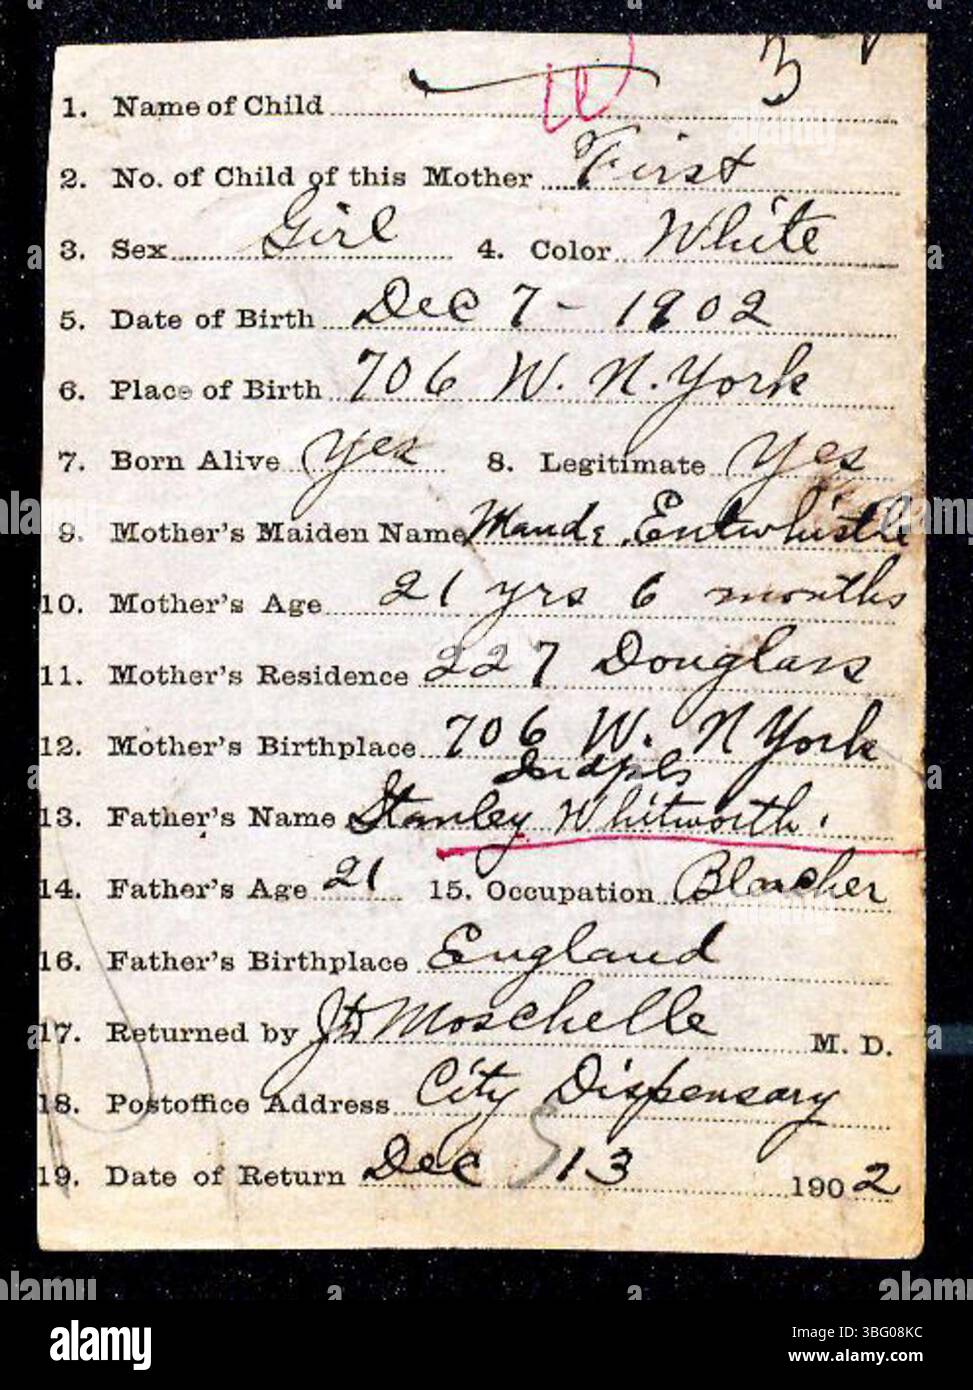 W 3
1. Name of Child
2. No. of Child of this Mother First
3. Sex Girl 4. Color White
5. Date of Birth Dec 7 - 1902
6. Place of Birth 706 W. N. York
7. Born Alive Yes 8. Legitimate Yes
9. Mother's Maiden Name Maude Entwhistle
10. Mother's Age 21 yrs 6 months
11. Mother's Residence 227 Douglass
12. Mother's Birthplace 706 W. N York
Indpls
13. Father's Name Stanley Whitworth.
14. Father's Age 21 15. Occupation Bleacher
16. Father's Birthplace England
17. Returned by Moschelle M. D.
18. Postoffice Address City Dispensary
19. Date of Return Dec 13 1902
alamy
Image ID: 3BG08KC
www.alamy.com